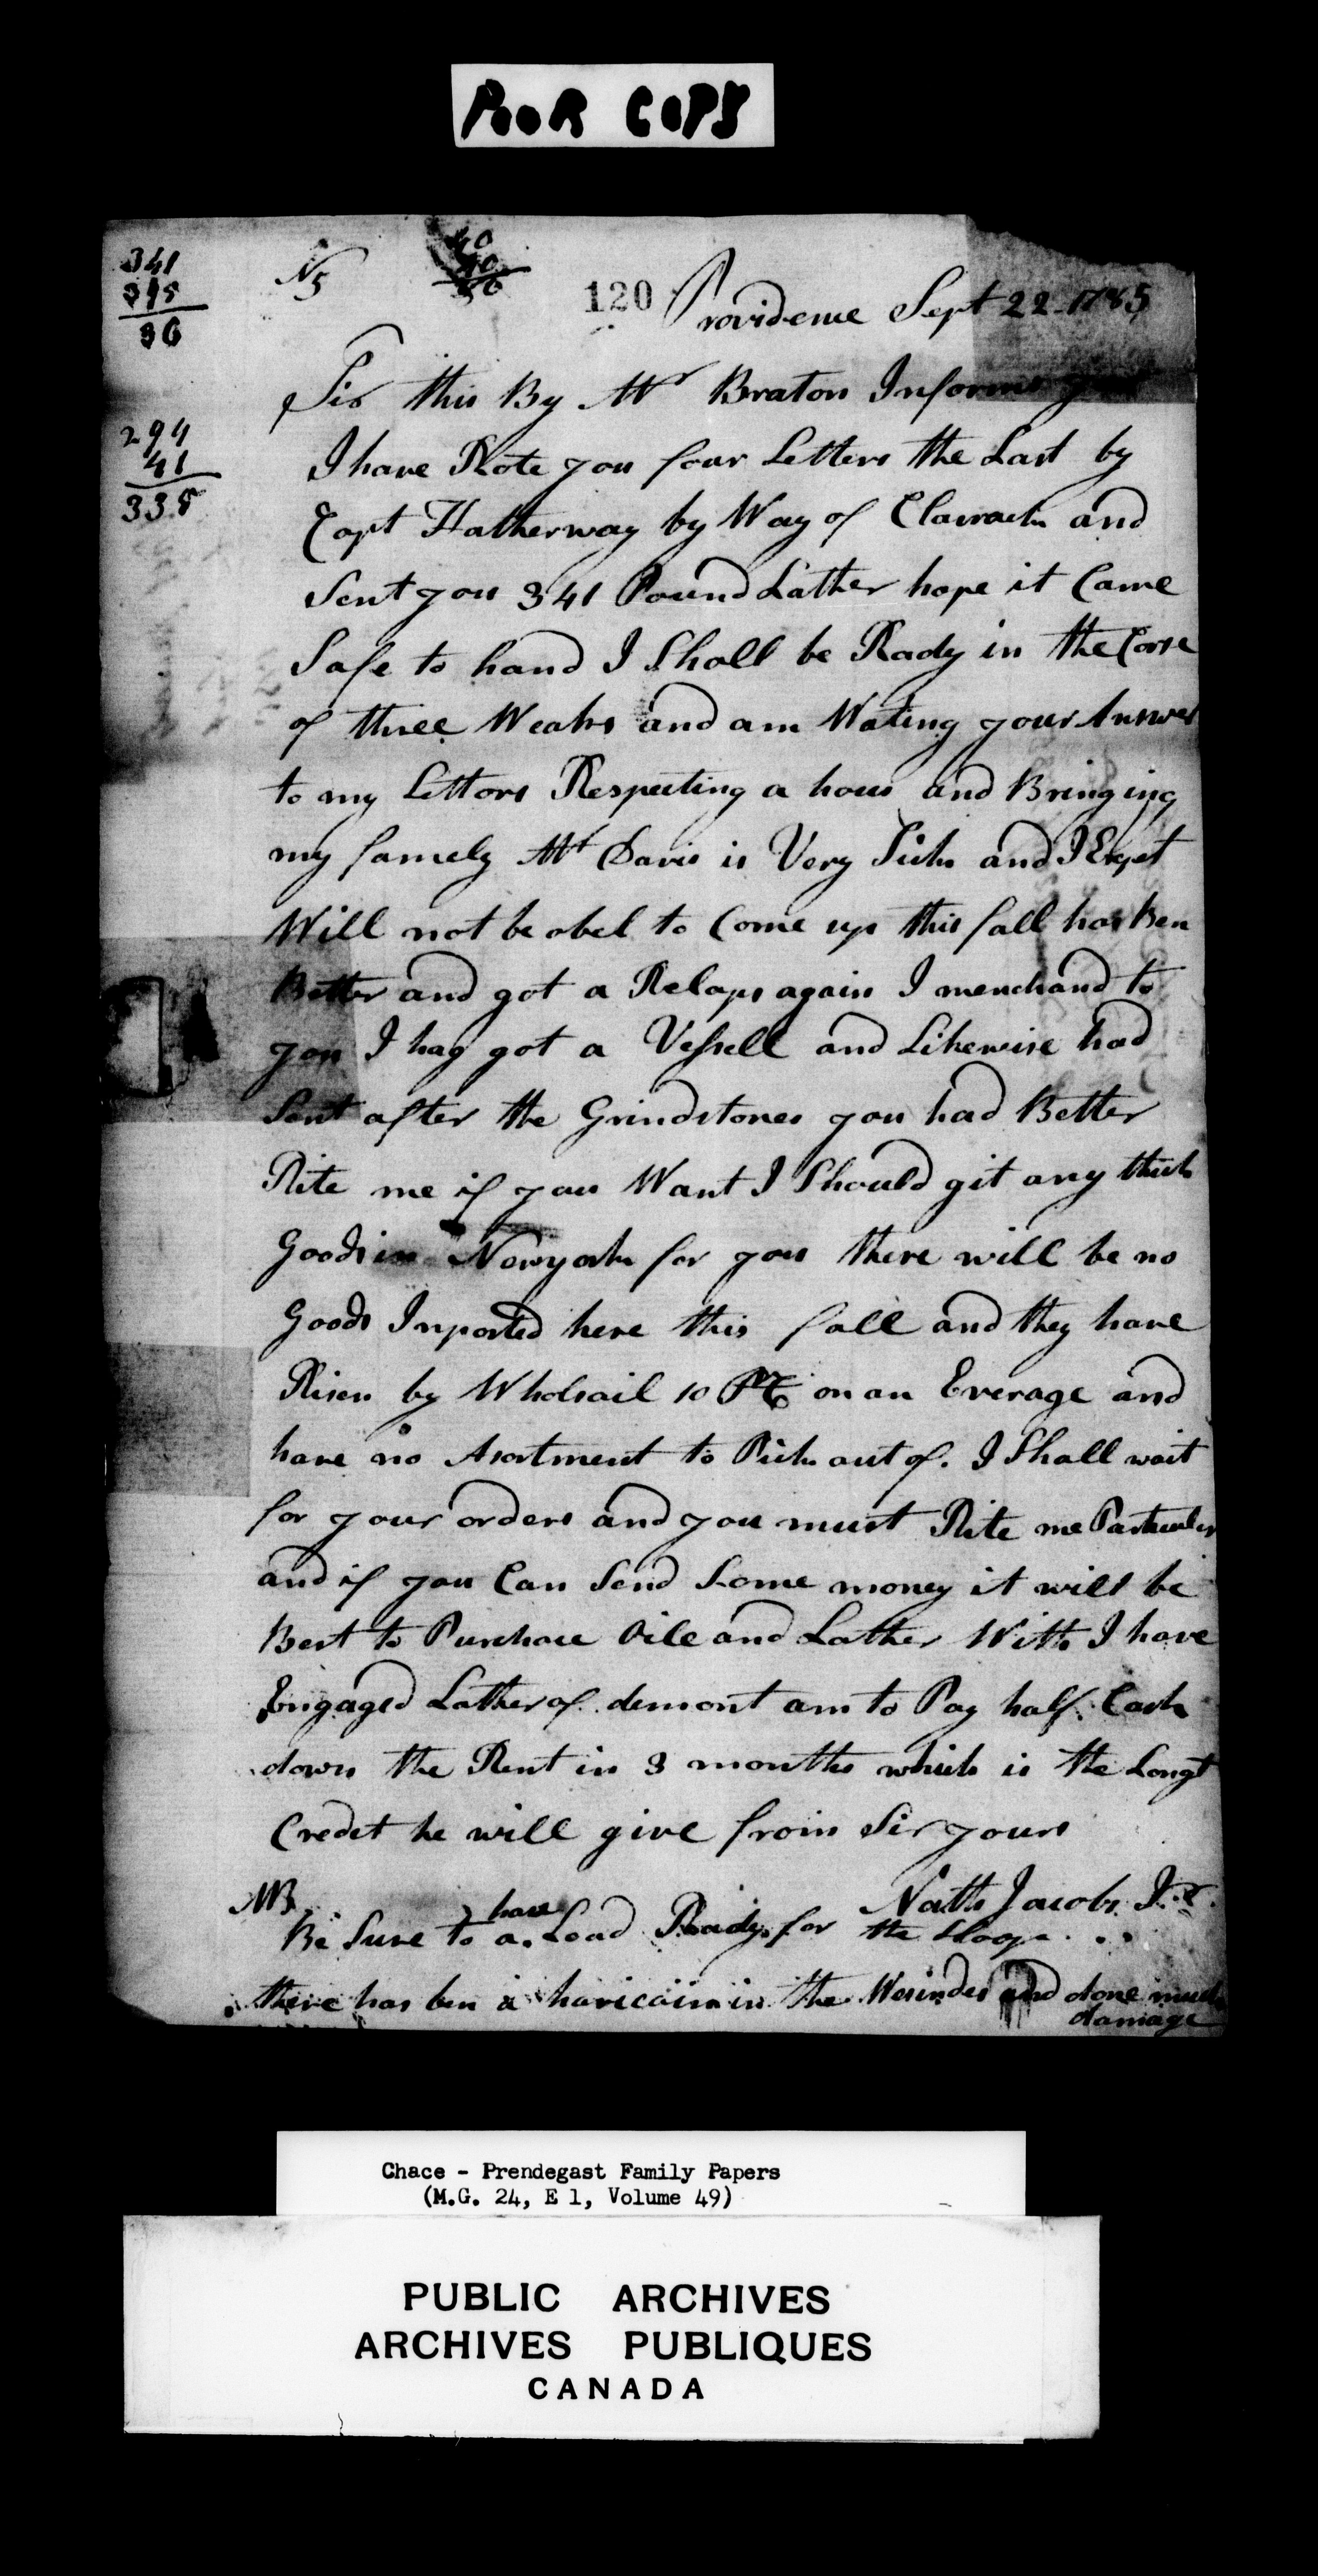 POOR COPY
341
315
36
N 5
40
40
120
Providence Sept 22-1785
294
41
335
Sir this By Mr Braton Informs you
I have Rote you four Letters the Last by
Capt Hatherway by Way of Clavrack and
Sent you 341 Pound Lather hope it Came
Safe to hand I Shall be Rady in the Corse
of three Weaks and am Wating your Answer
to my Lettors Respecting a hous and Bringing
my famely Mr Davis is Very Sick and I Expt
Will not be abel to Come up this fall has Ben
Better and got a Relaps again I menchand to
you I hag got a Vessell and Likewise had
Sent after the Grindstones you had Better
Rite me if you Want I Should git any thick
Goods in Newyork for you there will be no
Goods Inported here this fall and they have
Risen by Wholsail 10 PCt on an Everage and
have no Asortment to Pick out of. I Shall wait
for your orders and you must Rite me Particuler
and if you Can Send Some money it will be
Best to Purchace Oile and Lather With I have
Engaged Lather of demont am to Pay half Cash
down the Rest in 3 months which is the Longt
Credet he will give from Sir yours
Nath Jacobs Jr
NB
Be Sure to have a Load Rady for the Sloop...
there has ben a haricain in the Wesindes and done much
damage
Chace - Prendegast Family Papers
(M.G. 24, E 1, Volume 49)
PUBLIC ARCHIVES
ARCHIVES PUBLIQUES
CANADA